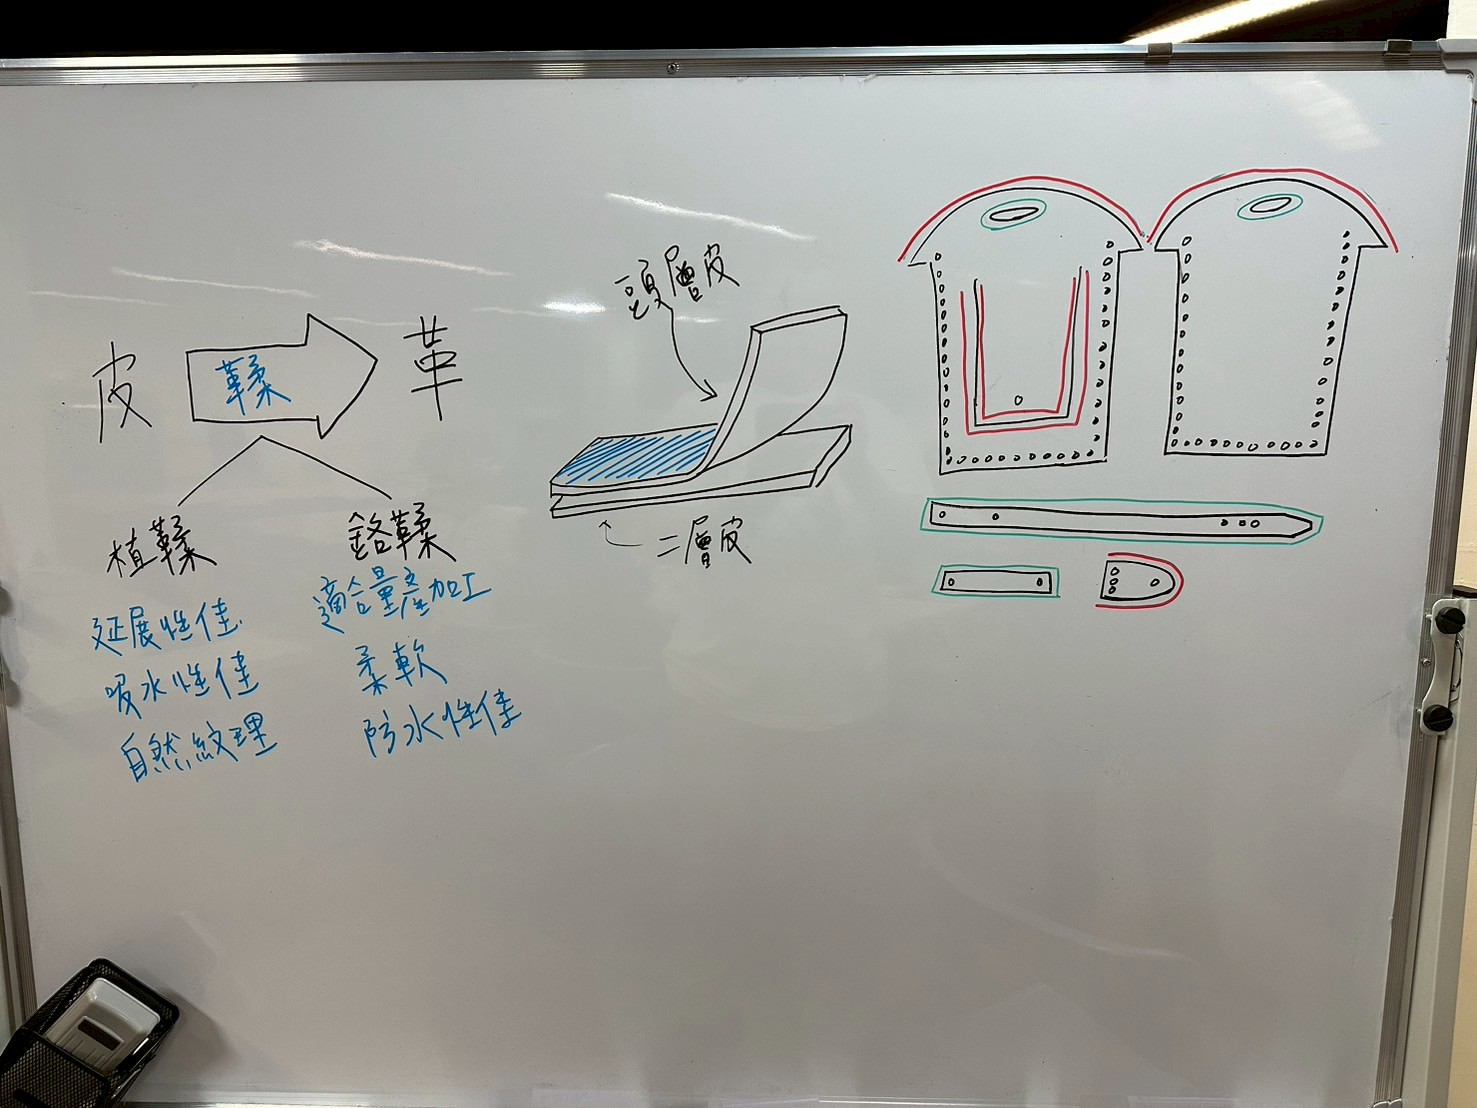 皮 鞣 革
植鞣
延展性佳
吸水性佳
自然紋理
鉻鞣
適合量產加工
柔軟
防水性佳
頭層皮
二層皮